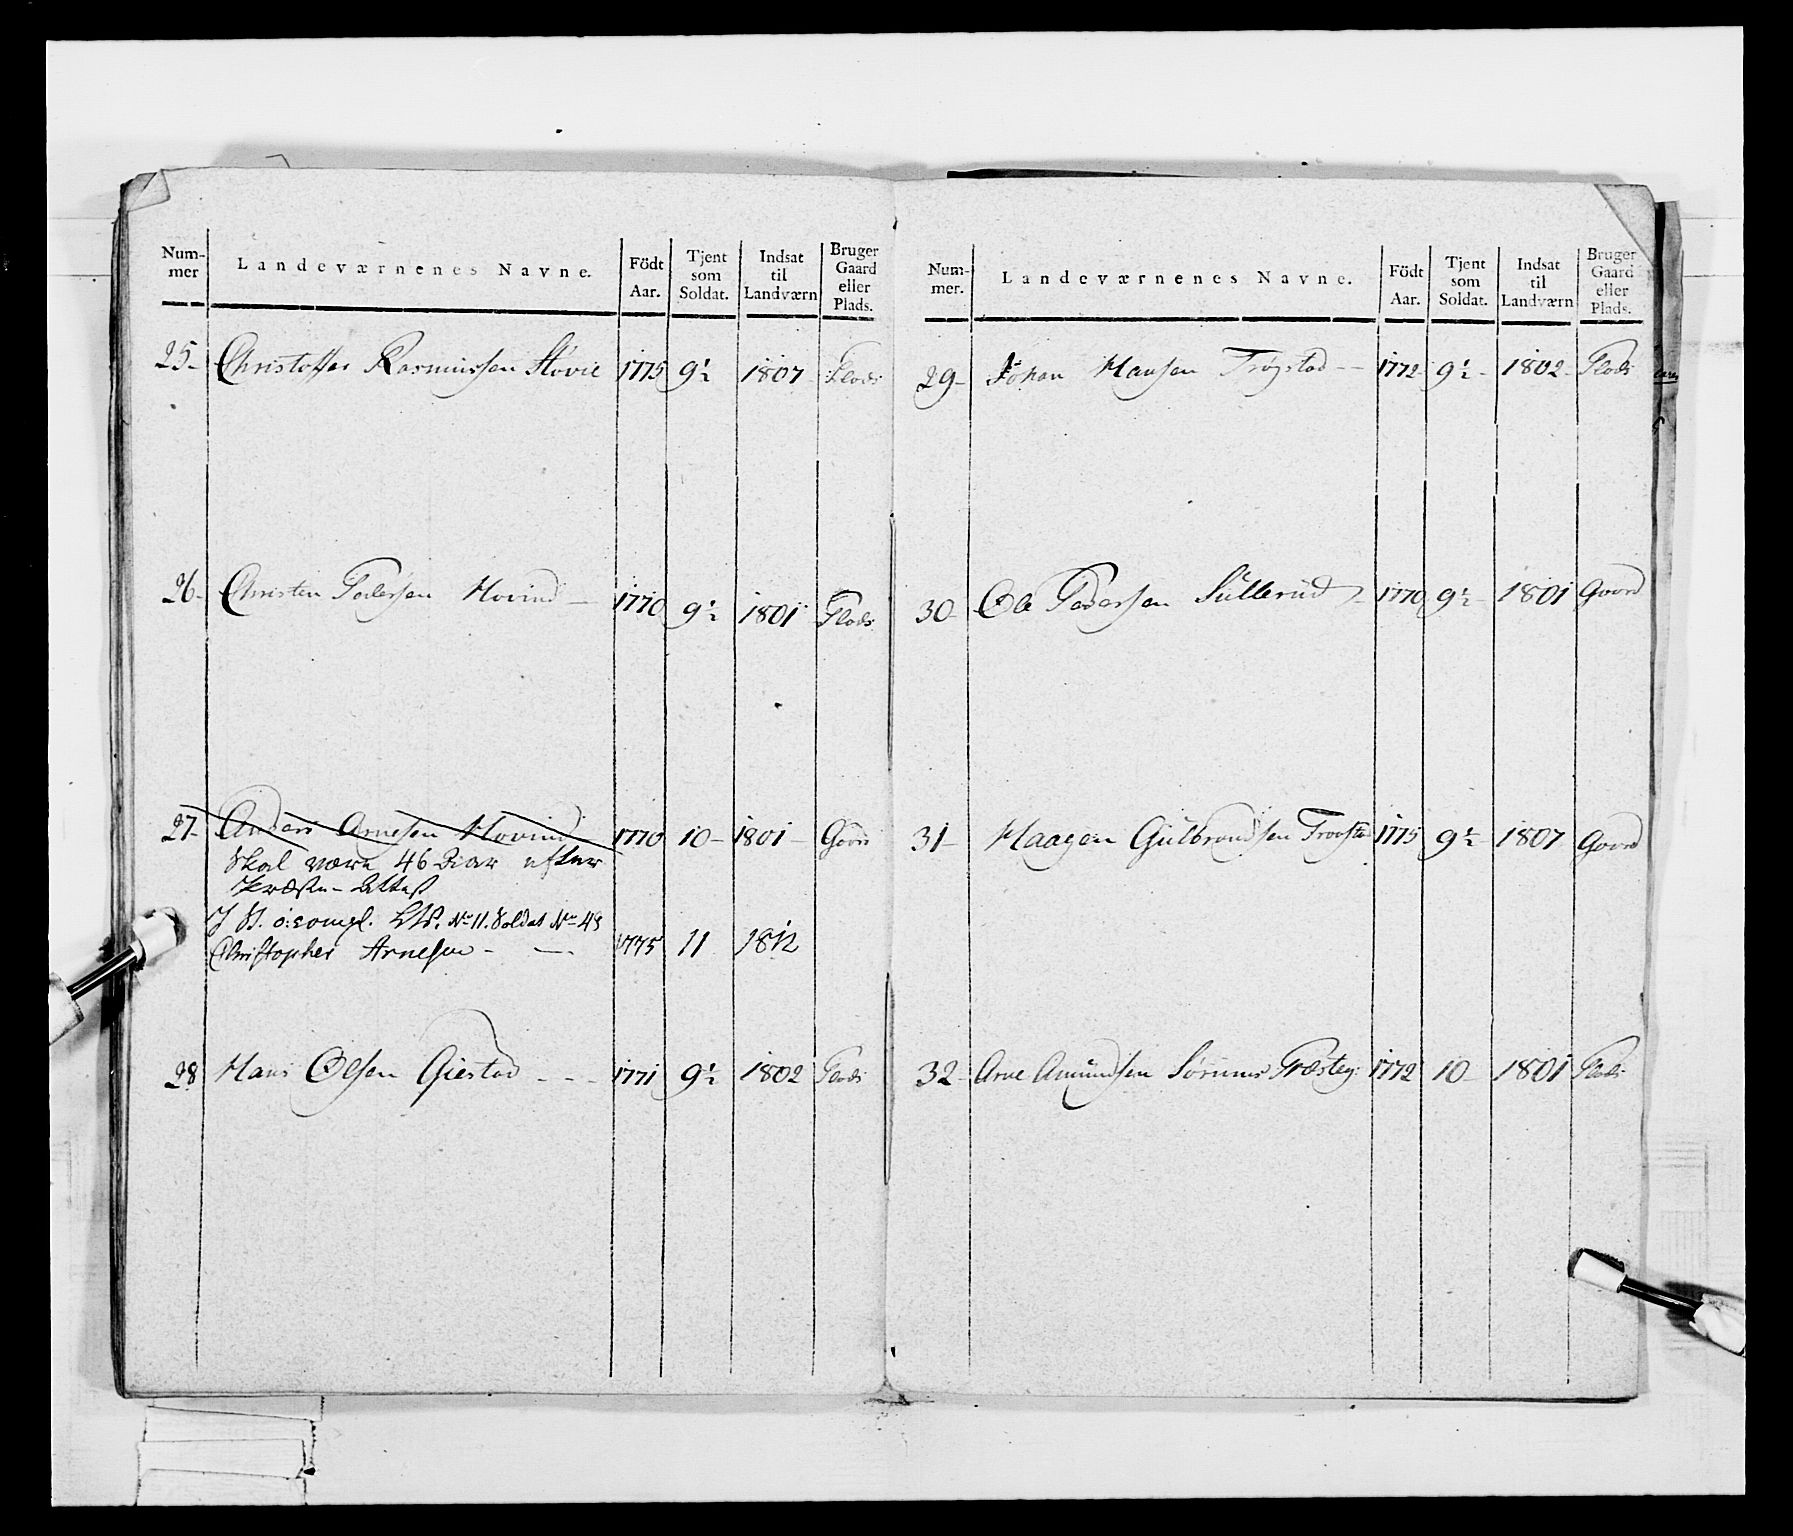 Num-
mer
Landeværnenes Navne.
Födt
Aar.
Tjent
som
Soldat.
Indsat
til
Landværn
Bruger
Gaard
eller
Plads.
25- Christoffer Rasmussen Hovie 1775 9½ 1807- Plads
26- Christen Pedersen Hovind - 1770 9½ 1801 Plads
27- Anders Arnesen Hovind 1770 10- 1801- Gaard
Skal være 46 Aar efter
Præste-Attest
I St. o: compl. No 11. Soldat No 49
Christopher Arnesen - - 1775 11 1812
28 Hans Olsen Giestad - - - 1771 9½ 1802 Plads
Num-
mer.
Landeværnenes Navne.
Födt
Aar.
Tjent
som
Soldat.
Indsat
til
Landværn
Bruger
Gaard
eller
Plads.
29- Johan Hansen Trøgstad - - 1772- 9½- 1802- Plads
30- Ole Pedersen Sullerud - 1770 9½- 1801 Gaard
31- Haagen Gulbrandsen 1775 9½- 1807 Gaard
32- Arne Amundsen Sørums Præsteg: 1772 10- 1801 Plads